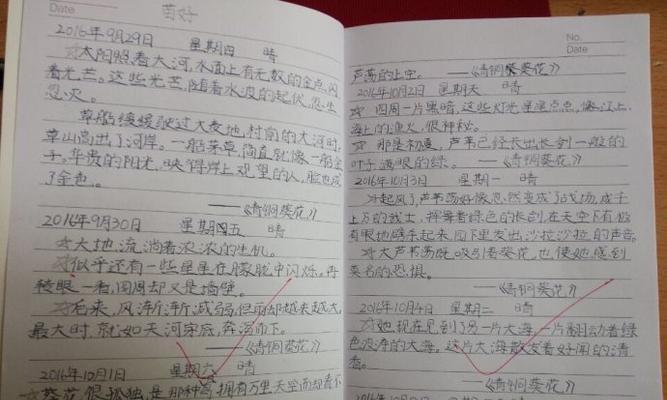 Date
苗好
2016年9月29日 星期四 晴
☆太阳照着大河,水面上有无数的金点,闪
着光芒。这些光芒,随着水波的起伏,忽生
忽灭。
草船缓缓驶过大麦地,村前的大河时,
草山高出了河岸。一船茅草,简直就像一船金
子。华贵的阳光,映得岸上观望的人,脸也成
了金色。
——《青铜葵花》
2016年9月30 星期五 晴
☆大地,流淌着浓浓的生机。
☆似乎还有一些星星在朦胧中闪烁。再
转眼一看,四周却又是墙壁。
☆后来,风渐渐减弱,但雨却越来越大,
最大时,就如天河穿底,奔泻而下。
——《青铜葵花》
2016年10月1日 星期六 晴
葵花很孤独,是那种 拥有万里天空而却看不
No.
Date
芦荡的上空。 ——《青铜葵花》
2016年10月2日 星期天 晴
☆ 四周一片黑暗,这些灯光星星点点,像江上、
海上的渔火,很神秘。
☆ 那是初夏,芦苇已经长出长剑一般的
叶子,通眼的绿。 ——《青铜葵花》
2016年10月3日 星期一 晴
☆起风了,芦苇荡好像忽然变成了战场,成千
上万的武士,挥舞着绿色的长剑,在天空下有板
有眼地劈杀起来,四下里发出沙拉沙拉的声音。
☆大芦苇荡既吸引着葵花,也使她感到
莫名的恐惧。
——《青铜葵花》
2016年10月4日 星期二 晴
☆她现在见到了另一片大海,一片翻动着绿
色波涛的大海。这片大海散发着好闻的清
香。
——《青铜葵花》